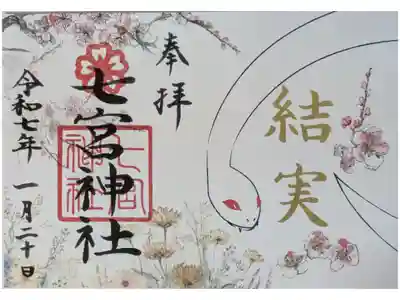 結実
奉拝
七宮神社
七宮
神社
令和七年 一月二十日